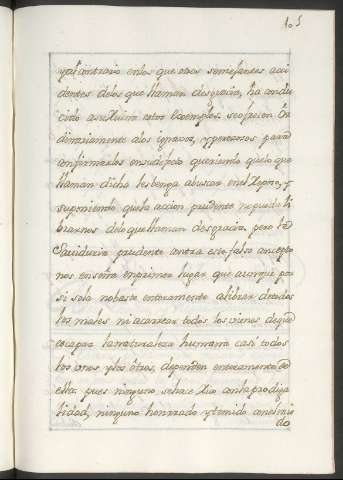 105
y al contrario en los que esos semejantes acci
dentes delos que llaman desgracia, ha condu
cido a estos exemplos se ofrecen or
dinariamente alos ignaros, y perezosos para
confirmarlos en su defecto queriendo que lo que
llaman dicha les benga a buscar en el Reposo, y
suponiendo que la accion prudente no puede li
brarnos delo que llaman desgracia, pero la
Saviduria prudente contra este falso concepto
nos enseña en primer lugar que aunque por
si sola no baste enteramente a librar de todos
los males ni acarrear todos los vienes de que
es capaz la naturaleza humana casi todos
los unos y los otros, dependen enteramente de
ella; pues ninguno se hace Rico con la prodiga
lidad, ninguno honrrado y temido
do